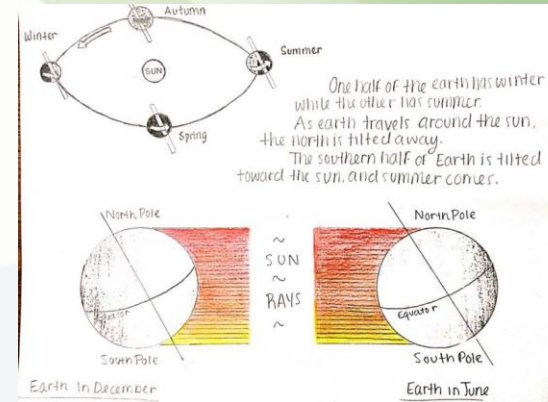 Autumn
Winter
Summer
SUN
Spring
One half of the earth has winter
while the other has summer.
As earth travels around the sun,
the north is tilted away.
The southern half of Earth is tilted
toward the sun. and summer comes.
North Pole
North Pole
~
SUN
~
RAYS
~
Equator
Equator
South Pole
South Pole
Earth in December
Earth in June